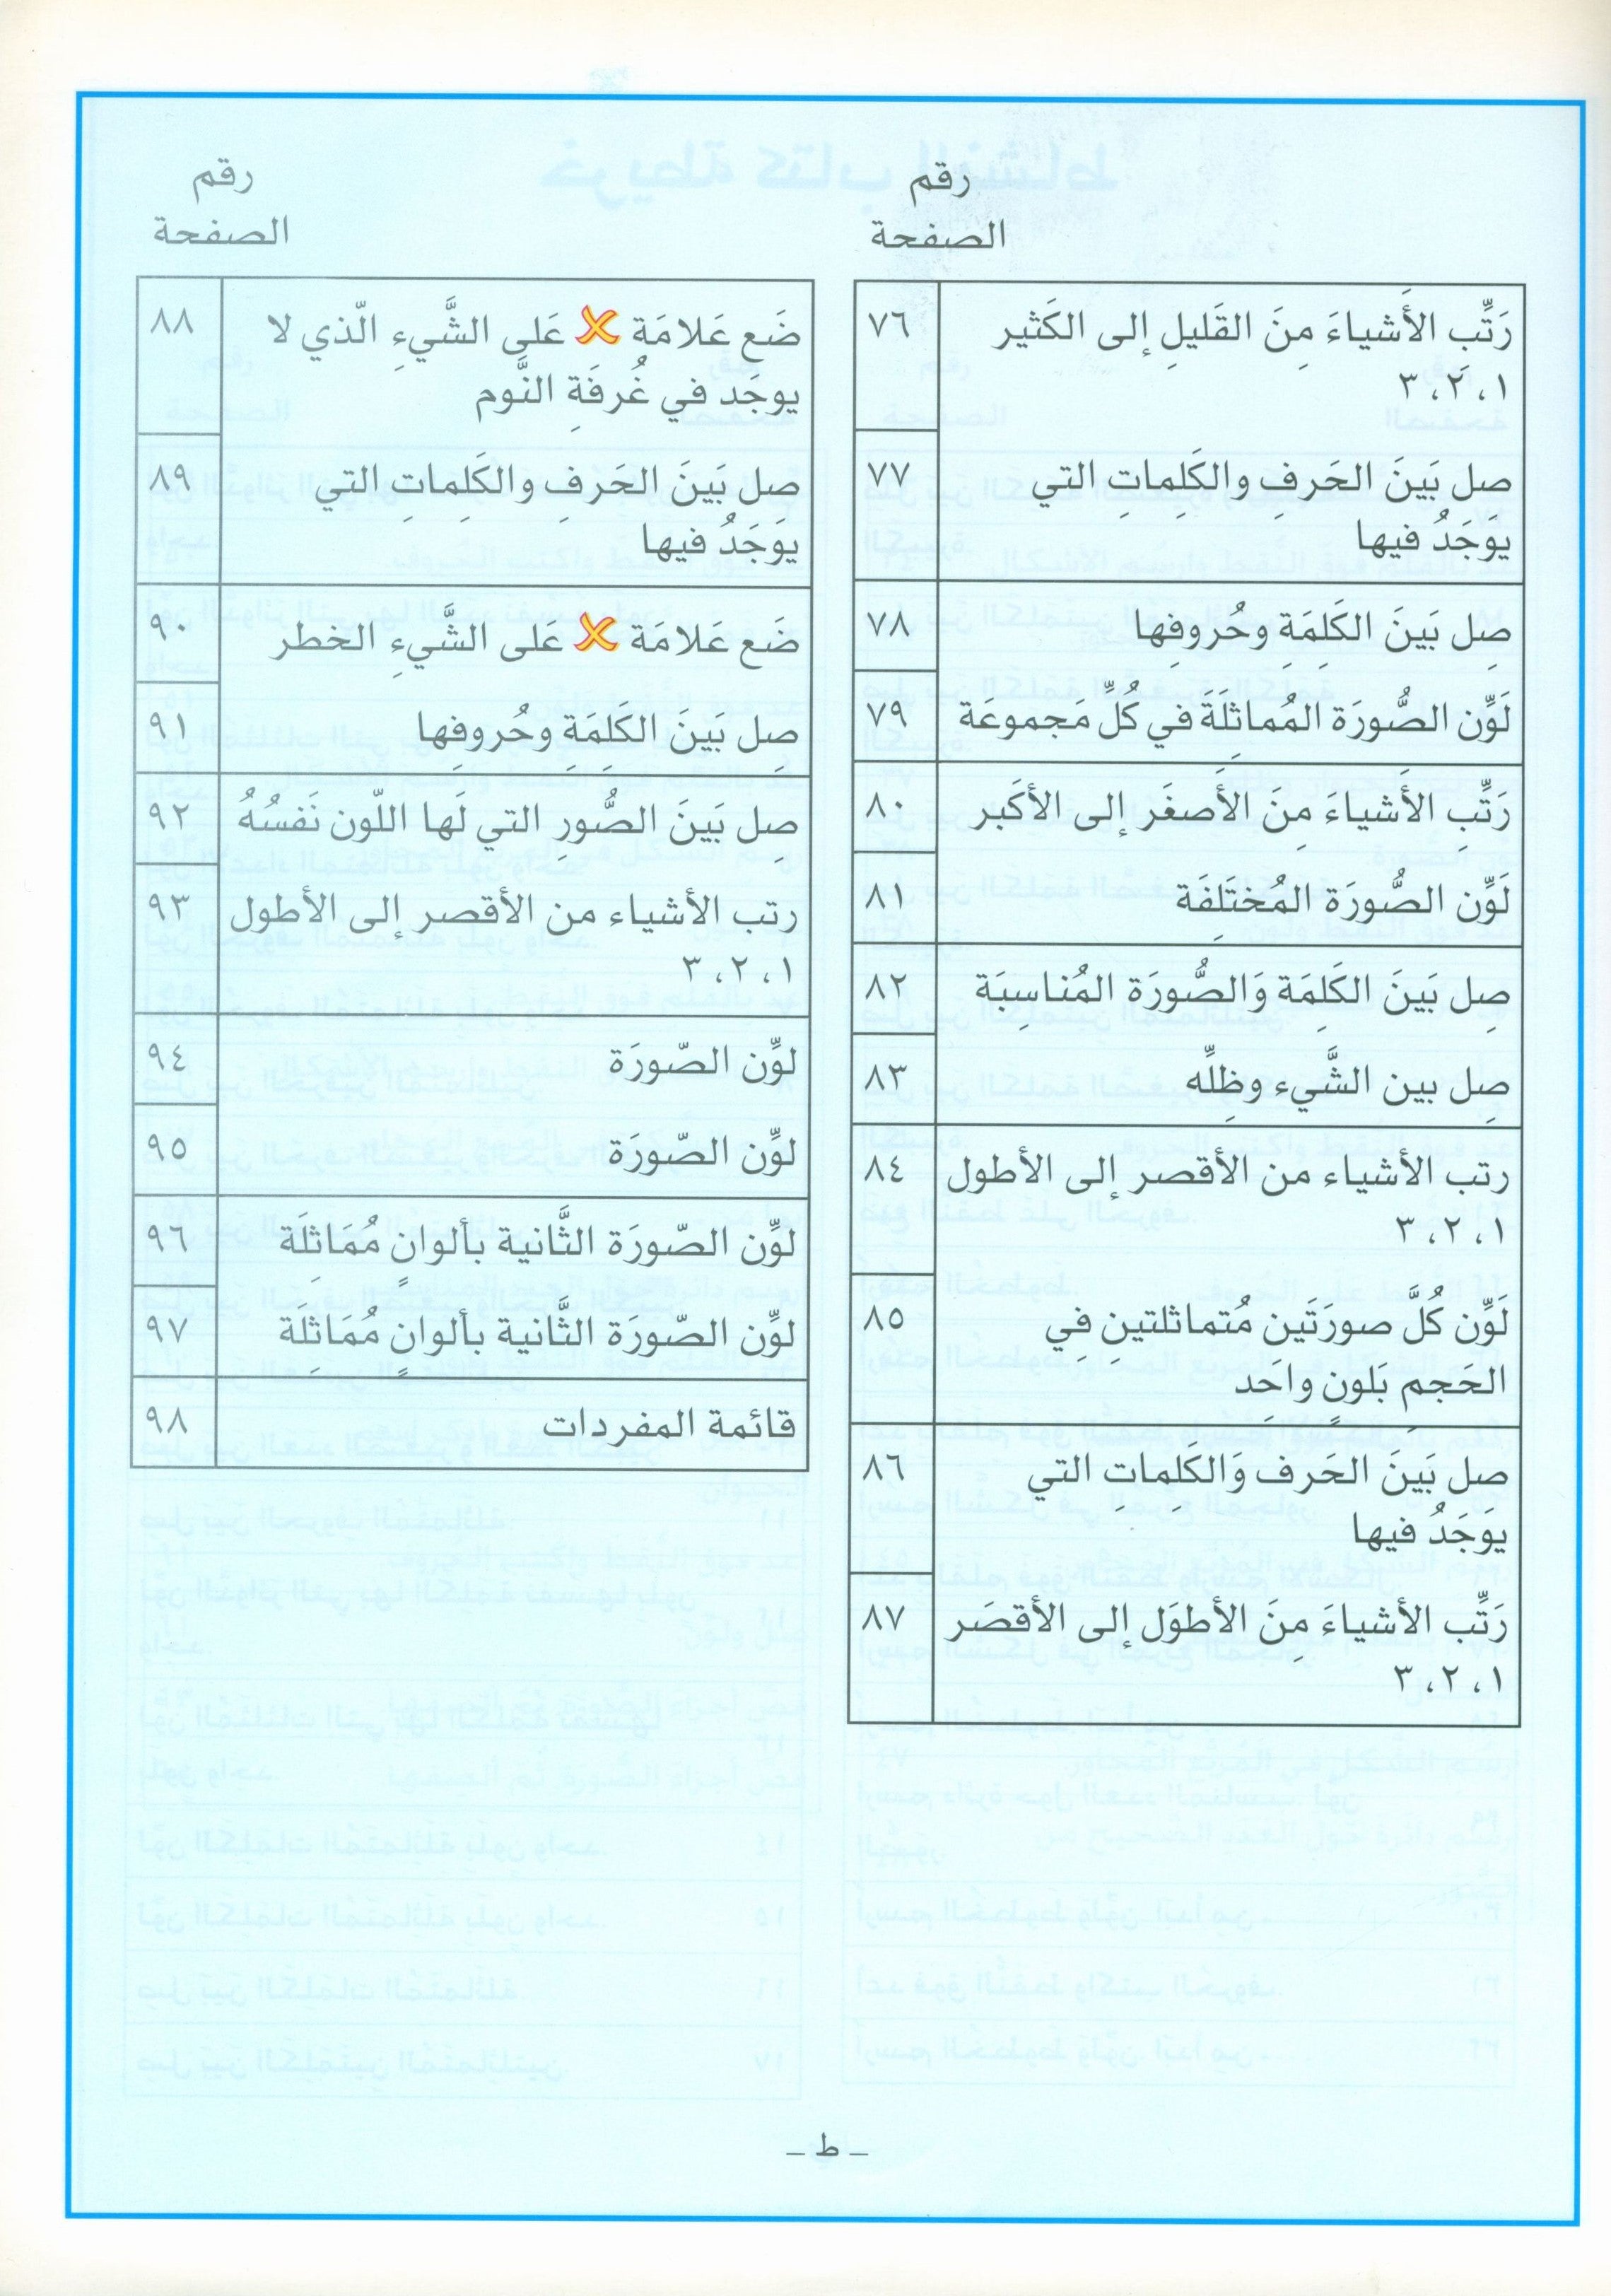 رقم
الصفحة
رَتِّب الأَشياءَ مِنَ القَليلِ إلى الكَثير ٧٦
١، ٢، ٣
صِل بَينَ الحَرفِ والكَلِماتِ التي ٧٧
يوَجَدُ فيها
صِل بَينَ الكَلِمَةِ وحُروفِها ٧٨
لَوِّن الصُّورَة المُماثِلَةَ في كُلِّ مَجموعَة ٧٩
رَتِّبِ الأَشياءَ مِنَ الأَصغَر إلى الأكَبر ٨٠
لَوِّن الصُّورَة المُختَلِفَة ٨١
صِل بَينَ الكَلِمَة وَالصُّورَة المُناسِبَة ٨٢
صِل بين الشَّيء وظِلِّه ٨٣
رتب الأشياء من الأقصر إلى الأطول ٨٤
١، ٢، ٣
لَوِّن كُلَّ صورَتَين مُتماثلتينِ فِي ٨٥
الحَجم بَلون واحَد
صِل بَينَ الحَرف وَالكَلِماتِ التي ٨٦
يوَجَدُ فيها
رَتِّب الأَشياءَ مِنَ الأطوَل إلى الأقصَر ٨٧
١، ٢، ٣
رقم
الصفحة
ضَع عَلامَة ✗ عَلى الشَّيءِ الّذي لا ٨٨
يوجَد في غُرفَةِ النَّوم
صِل بَينَ الحَرفِ والكَلِماتِ التي ٨٩
يوَجَدُ فيها
ضَع عَلامَة ✗ عَلى الشَّيءِ الخطر ٩٠
صِل بَينَ الكَلمَةِ وحُروفِها ٩١
صِل بَينَ الصُّورِ التي لَها اللّون نَفسُهُ ٩٢
رتب الأشياء من الأقصر إلى الأطول ٩٣
١، ٢، ٣
لوِّن الصّورَة ٩٤
لوِّن الصّورَة ٩٥
لوِّن الصّورَة الثَّانية بألوانٍ مُمَاثِلَة ٩٦
لوِّن الصّورَة الثَّانية بألوانٍ مُمَاثِلَة ٩٧
قائمة المفردات ٩٨
– ط –